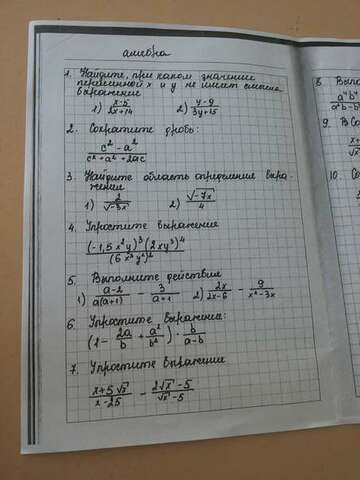 алгебра
1. Найдите, при каком значении
переменной x и y не имеет смысла
выражение
1) (x-5)/(2x+14) 2) (y-9)/(3y+15)
2. Сократите дробь:
(c²-a²)/(c²+a²+2ac)
3. Найдите область определения выра-
жения
1) 2/√-3x 2) √-7x/4
4. Упростите выражения
(-1,5x²y)³(2xy³)⁴/(6x³y²)²
5. Выполните действия
1) (a-2)/(a(a+1)) - 3/(a+1) 2) 2x/(2x-6) - 9/(x²-3x)
6. Упростите выражение:
(1 - 2a/b + a²/b²) · b/(a-b)
7. Упростите выражения
(x+5√x)/(x-25) - (2√x-5)/(√x-5)
8. Выпо
9. В со
10. Со